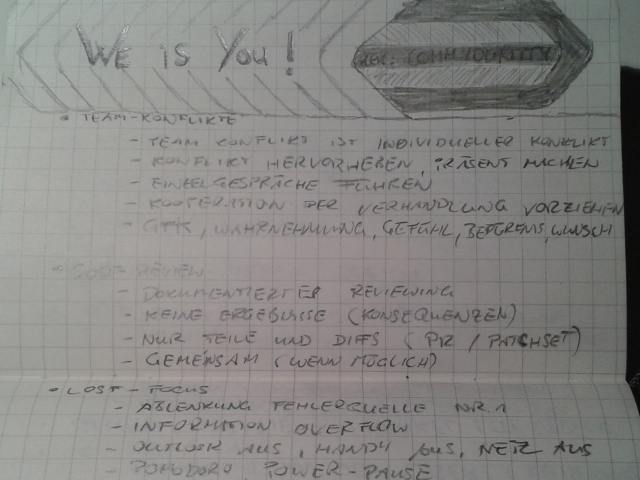 WE is YOU!
COMMUNITY
• TEAM-KONFLIKTE
- TEAM KONFLIKT IST INDIVIDUELLER KONFLIKT
- KONFLIKT HERVORHEBEN, PRÄSENT MACHEN
- EINZELGESPRÄCHE FÜHREN
- KOOPERATION DER VERHANDLUNG VORZIEHEN
- WAHRNEHMUNG, GEFÜHL, WUNSCH
• CODE-REVIEW
- DOKUMENTIERTES REVIEWING
- KEINE ERGEBNISSE (KONSEQUENZEN)
- NUR TEILE UND DIFFS (PR / PATCHSET)
- GEMEINSAM (WENN MÖGLICH)
• LOST-FOCUS
- ABLENKUNG FEHLERQUELLE NR. 1
- INFORMATION OVERFLOW
- OUTLOOK AUS, HANDY AUS, NETZ AUS
- POMODORO, POWER-PAUSE